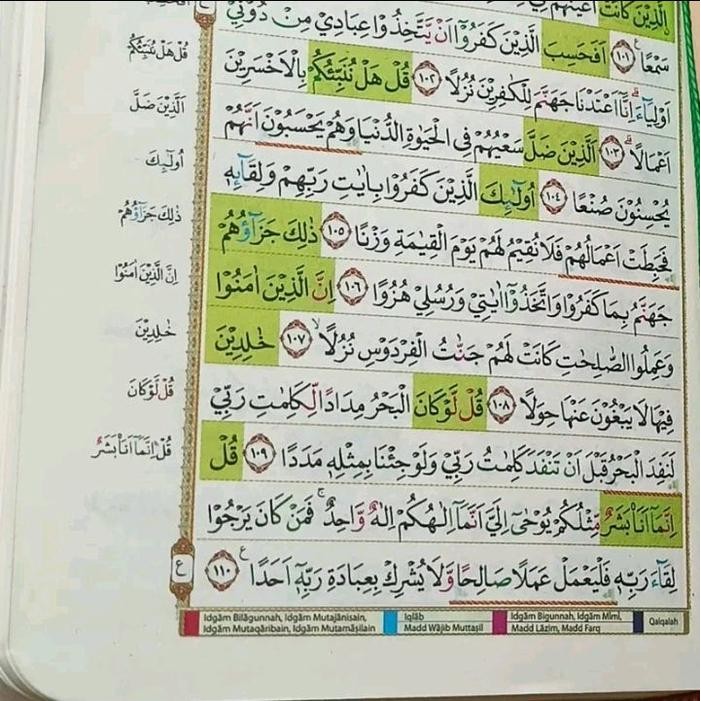 الَّذِيْنَ كَانَتْ اَعْيُنُهُمْ فِيْ
سَمْعًا ࣖ ١٠١ اَفَحَسِبَ الَّذِيْنَ كَفَرُوْٓا اَنْ يَّتَّخِذُوْا عِبَادِيْ مِنْ دُوْنِيْٓ
اَوْلِيَاۤءَ ۗاِنَّآ اَعْتَدْنَا جَهَنَّمَ لِلْكٰفِرِيْنَ نُزُلًا ١٠٢ قُلْ هَلْ نُنَبِّئُكُمْ بِالْاَخْسَرِيْنَ
اَعْمَالًا ۗ ١٠٣ اَلَّذِيْنَ ضَلَّ سَعْيُهُمْ فِى الْحَيٰوةِ الدُّنْيَا وَهُمْ يَحْسَبُوْنَ اَنَّهُمْ
يُحْسِنُوْنَ صُنْعًا ١٠٤ اُولٰۤىِٕكَ الَّذِيْنَ كَفَرُوْا بِاٰيٰتِ رَبِّهِمْ وَلِقَاۤىِٕهٖ
فَحَبِطَتْ اَعْمَالُهُمْ فَلَا نُقِيْمُ لَهُمْ يَوْمَ الْقِيٰمَةِ وَزْنًا ١٠٥ ذٰلِكَ جَزَاۤؤُهُمْ
جَهَنَّمُ بِمَا كَفَرُوْا وَاتَّخَذُوْٓا اٰيٰتِيْ وَرُسُلِيْ هُزُوًا ١٠٦ اِنَّ الَّذِيْنَ اٰمَنُوْا
وَعَمِلُوا الصّٰلِحٰتِ كَانَتْ لَهُمْ جَنّٰتُ الْفِرْدَوْسِ نُزُلًا ۙ ١٠٧ خٰلِدِيْنَ
فِيْهَا لَا يَبْغُوْنَ عَنْهَا حِوَلًا ١٠٨ قُلْ لَّوْ كَانَ الْبَحْرُ مِدَادًا لِّكَلِمٰتِ رَبِّيْ
لَنَفِدَ الْبَحْرُ قَبْلَ اَنْ تَنْفَدَ كَلِمٰتُ رَبِّيْ وَلَوْ جِئْنَا بِمِثْلِهٖ مَدَدًا ١٠٩ قُلْ
اِنَّمَآ اَنَا۠ بَشَرٌ مِّثْلُكُمْ يُوْحٰٓى اِلَيَّ اَنَّمَآ اِلٰهُكُمْ اِلٰهٌ وَّاحِدٌ ۚفَمَنْ كَانَ يَرْجُوْا
لِقَاۤءَ رَبِّهٖ فَلْيَعْمَلْ عَمَلًا صَالِحًا وَّلَا يُشْرِكْ بِعِبَادَةِ رَبِّهٖٓ اَحَدًا ࣖ ١١٠
قُلْ هَلْ نُنَبِّئُكُمْ
اَلَّذِيْنَ ضَلَّ
اُولٰۤىِٕكَ
ذٰلِكَ جَزَاۤؤُهُمْ
اِنَّ الَّذِيْنَ اٰمَنُوْا
خٰلِدِيْنَ
قُلْ لَّوْ كَانَ
قُلْ اِنَّمَآ اَنَا۠ بَشَرٌ
ع
Idgām Bilāgunnah, Idgām Mutajānisain,
Idgām Mutaqāribain, Idgām Mutamāṡilain
Iqlāb
Madd Wājib Muttaṣil
Idgām Bigunnah, Idgām Mīmī,
Madd Lāzim, Madd Farq
Qalqalah